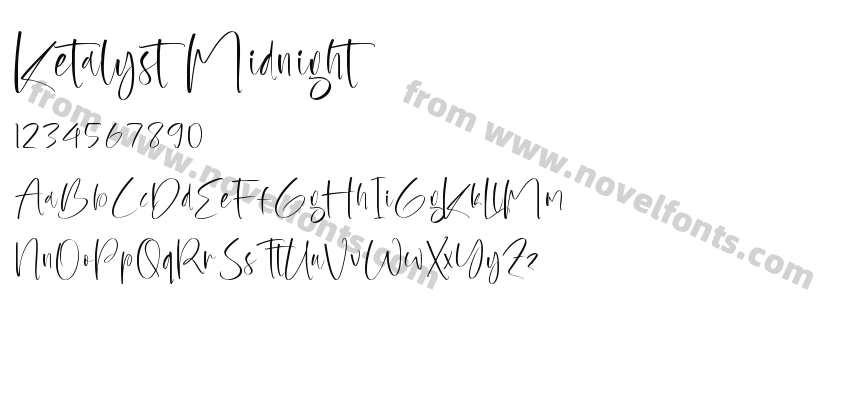 Ketalyst Midnight
1234567890
AaBbCcDdEeFfGgHhIiGgKkLlMm
NnOoPpQqRrSsTtUuVvWwXxYyZz
from www.novelfonts.com
from www.novelfonts.com